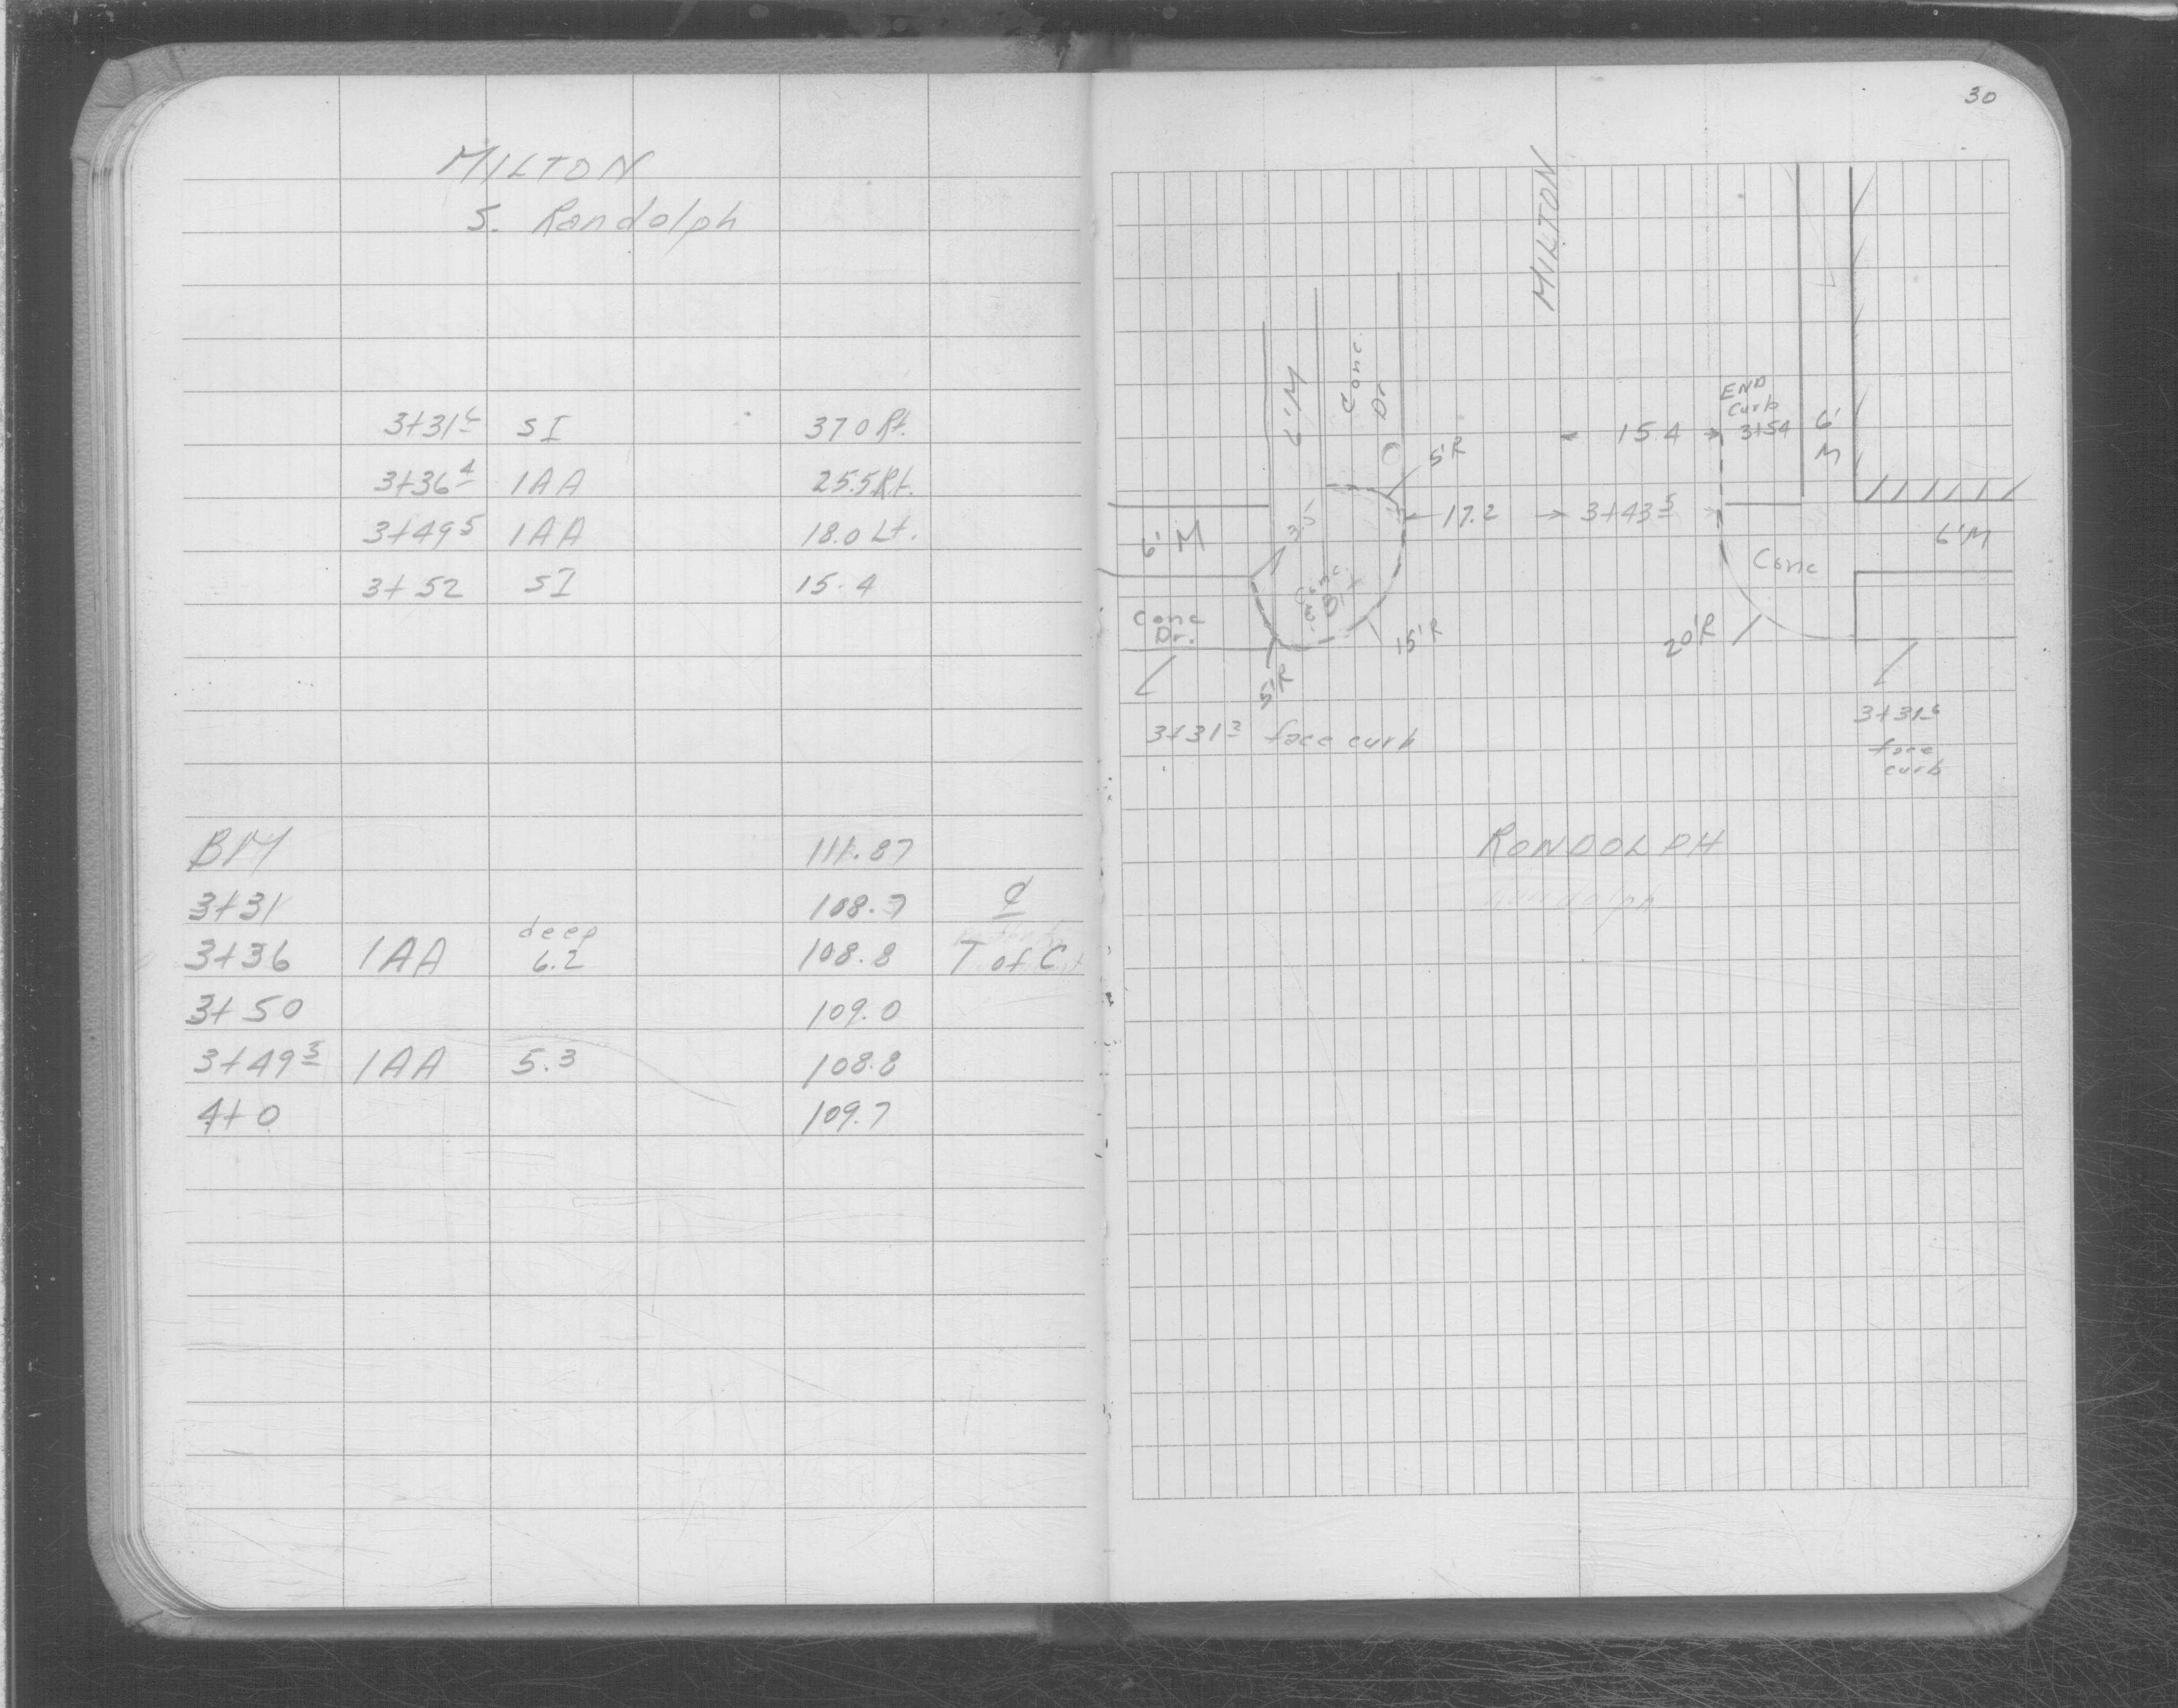 MILTON
S. Randolph
3+31⁶ SI 37.0 Rt.
3+36⁴ 1AA 25.5 Rt.
3+49⁵ 1AA 18.0 Lt.
3+52 SI 15.4
BM 111.87
3+31 108.7 ȼ
3+36 1AA deep 6.2 108.8 T of C
3+50 109.0
3+49⁵ 1AA 5.3 108.8
4+0 109.7
30
MILTON
6'M
Conc.
Dr
END
Curb
3+54
15.4
6'
M
5'R
17.2
3+43⁵
3.5
6'M
6'M
Conc
Conc
Dr.
15'R
20'R
5'R
3+31³ face curb
3+31⁶
face
curb
RONDOLPH